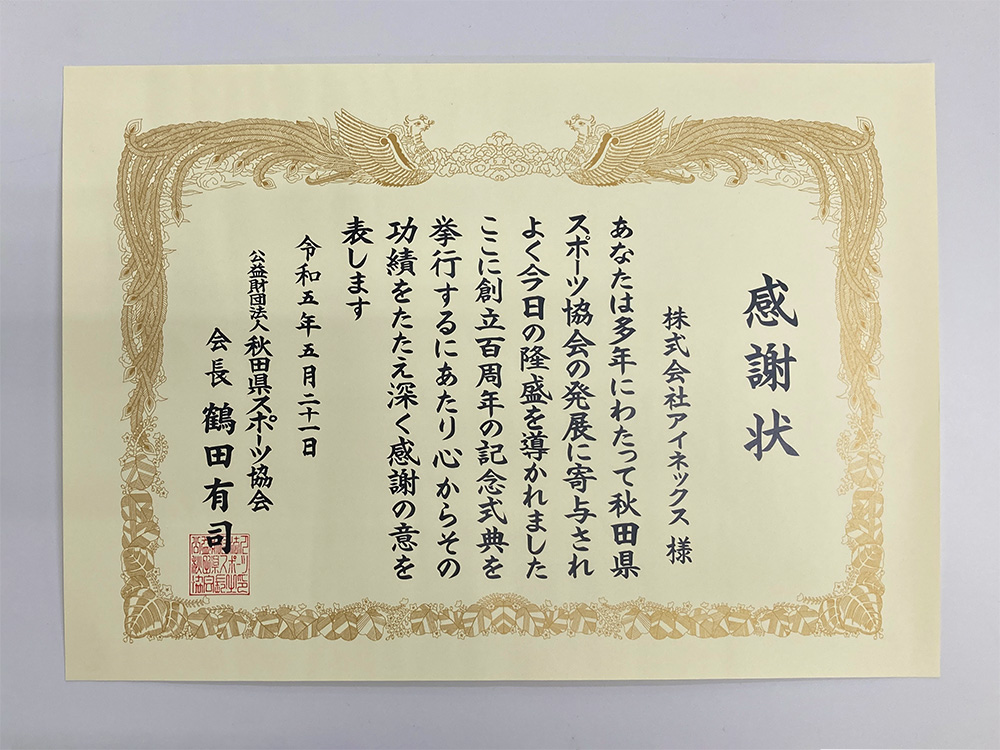 感謝状
株式会社アイネックス 様
あなたは多年にわたって秋田県
スポーツ協会の発展に寄与され
よく今日の隆盛を導かれました
ここに創立百周年の記念式典を
挙行するにあたり心からその
功績をたたえ深く感謝の意を
表します
令和五年五月二十一日
公益財団法人 秋田県スポーツ協会
会長 鶴田有司